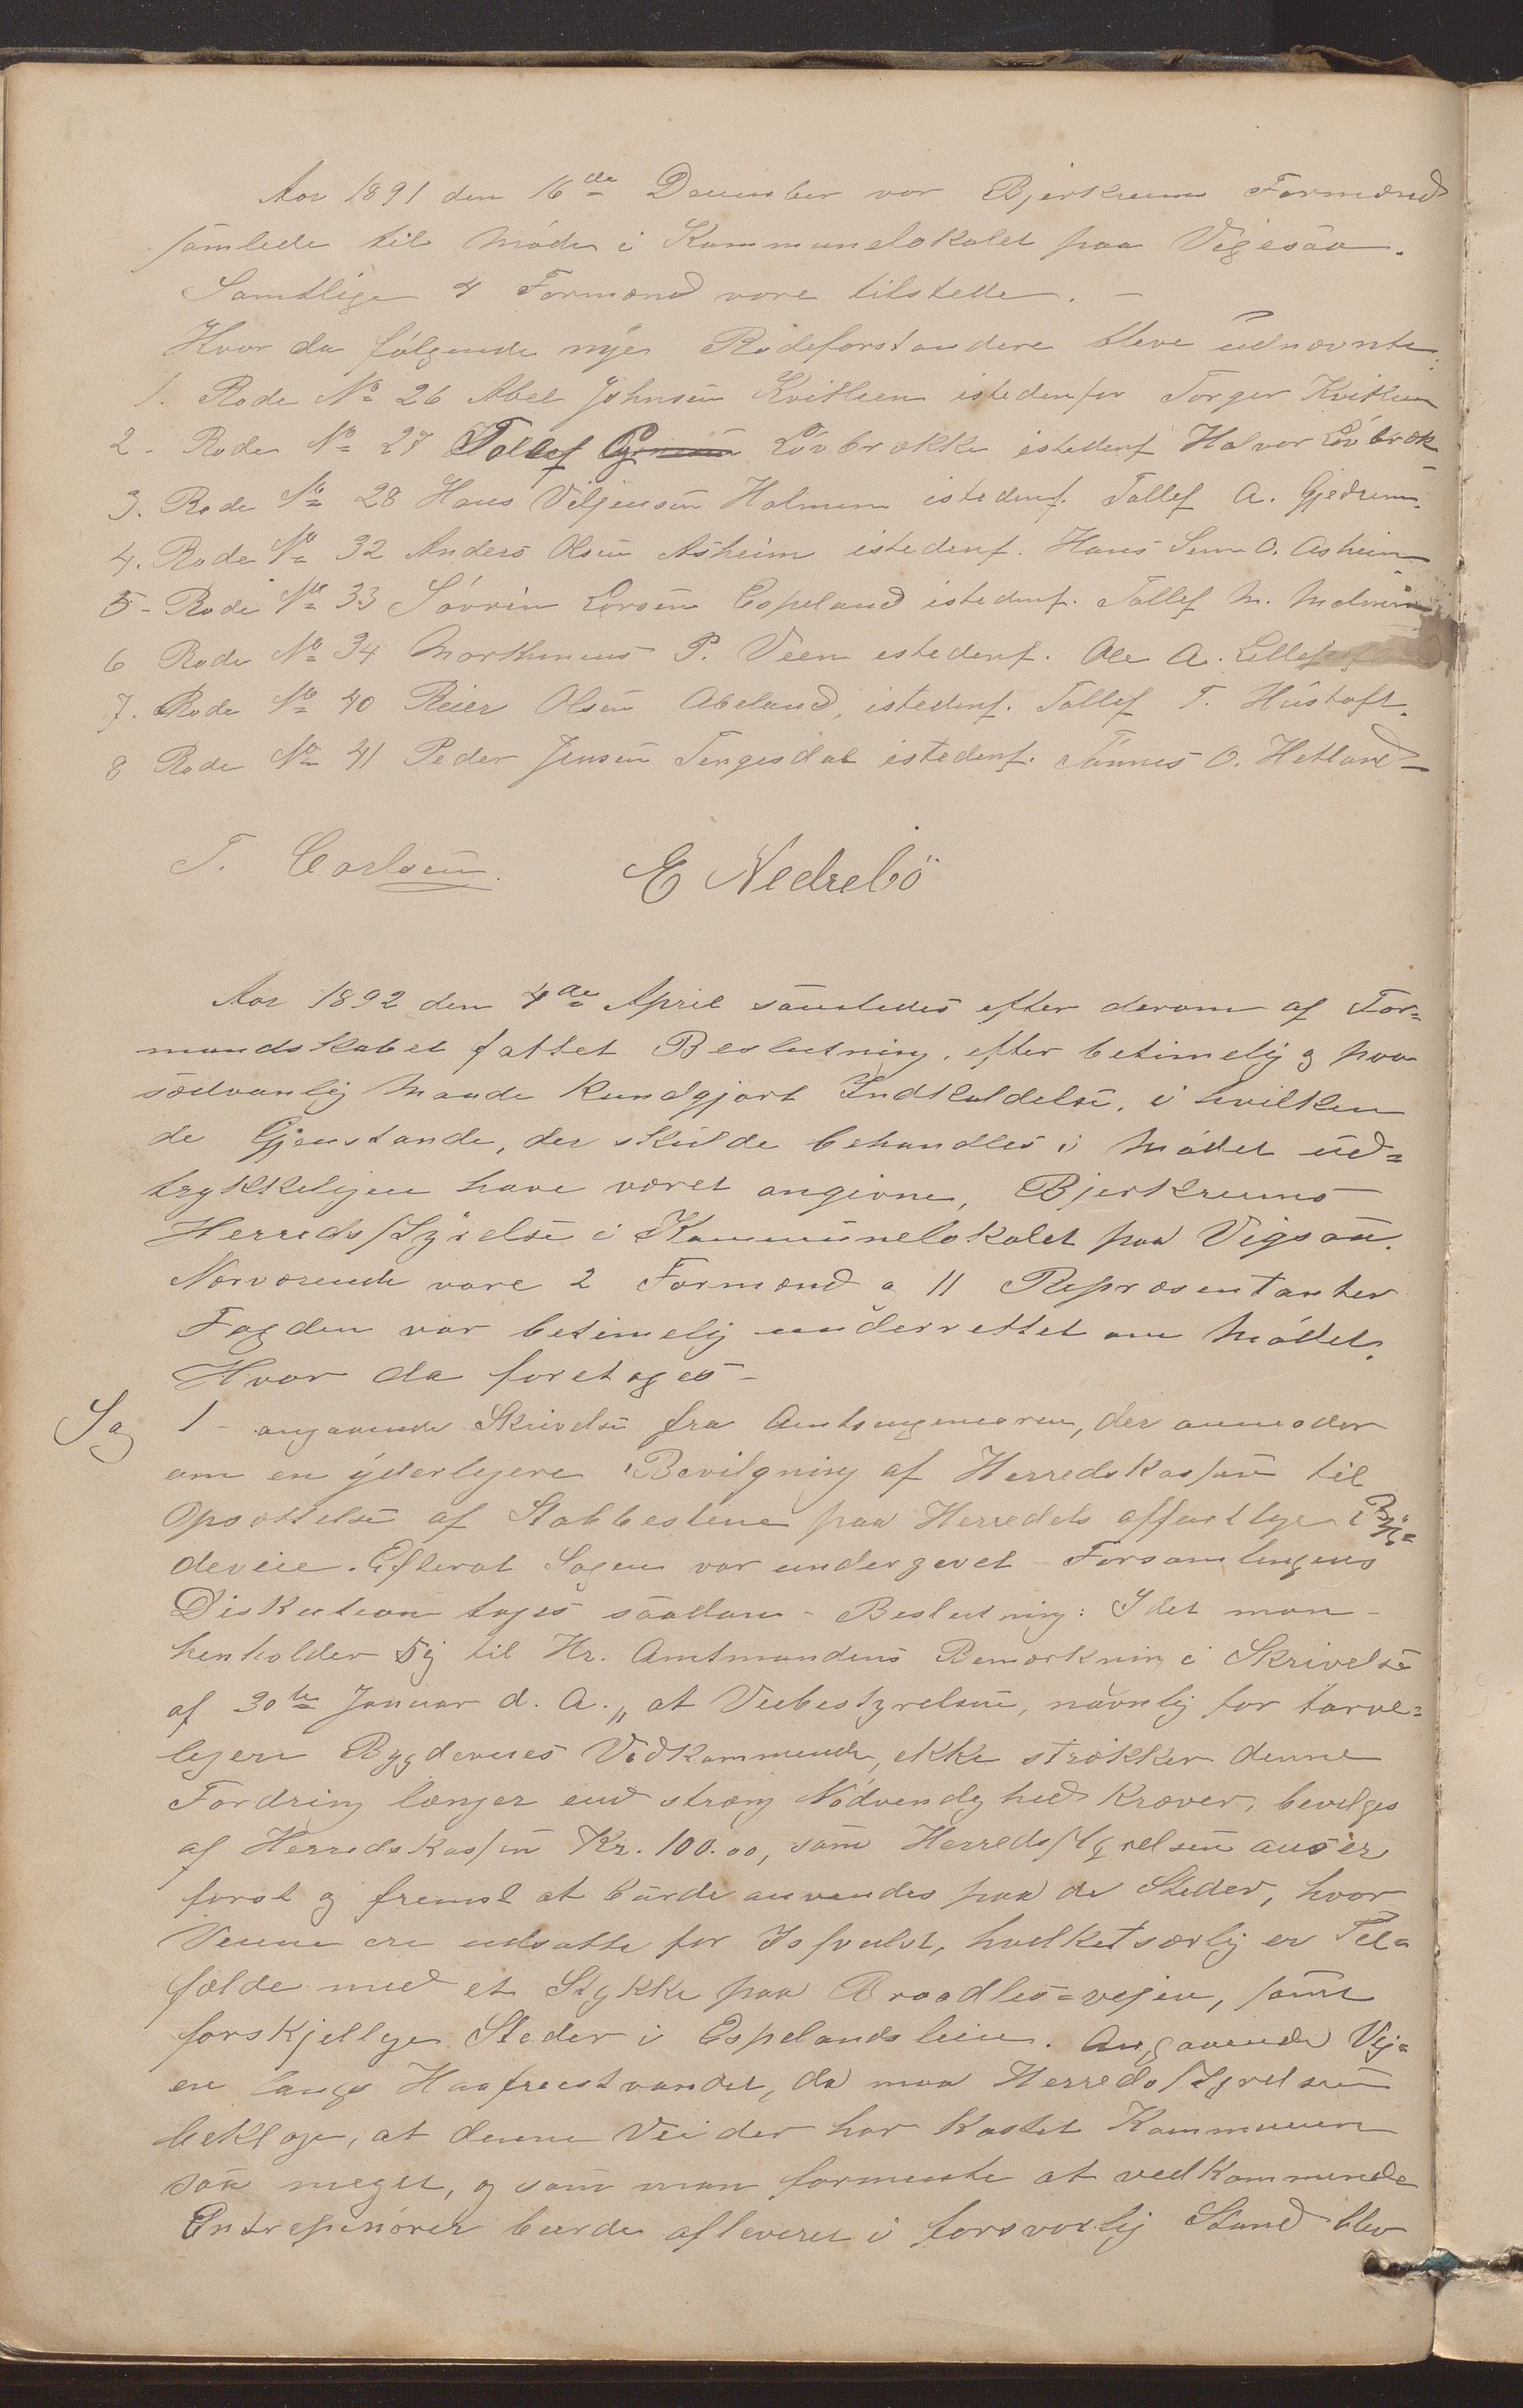 Aar 1891 den 16de December var Bjerkreims Formænd
samlede til Møde i Kommunelokalet paa Vigesaa.
Samtlige 4 Formænd vare tilstede. —
Hvor da følgende nye Rodeforstandere bleve udnævnte:
1. Rode No 26 Abel Johnsen Kvitleen istedenfor Torger Kvitleen
2 - Rode No 27 Tollef Løvbrække istedenf Halvor Løvbræk
3. Rode No 28 Hans Veljensen Holmen istedenf. Tollef A. Gjedrem
4. Rode No 32 Anders Olsen Asheim istedenf. Hans O. Asheim
5 - Rode No 33 Søvrin Larsen Espeland istedenf. Tollef M.
6 Rode No 34 P. Veen istedenf. Ole A.
7. Rode No 40 Reier Olsen Abeland, istedenf. Tollef T. Hustoft.
8 Rode No 41 Peder Jensen Tengesdal istedenf. Tønnes O. Hetland
T. Carlsen. E Nedrebö
Aar 1892 den 4de April samledes efter derom af For=
mandskabet fattet Beslutning, efter betimelig og paa
sædvanlig Maade kundgjort Indkaldelse, i hvilken
de Gjenstande, der skulde behandles i Mødet ud=
trykkeligen have været angivne, Bjerkreims
Herredsstyrelse i Kommunelokalet paa Vigsaa.
Nærværende vare 2 Formænd og 11 Repræsentanter
Fogden var betimelig underrettet om Mødet.
Hvor da foretoges -
Sag 1 - angaaende Skrivelse fra Amtsingeniøren, der anmoder
om en yderligere Bevilgning af Herredskassen til
Opsættelse af Stabbestene paa Herredets offentlige Byg=
deveie. Efterat Sagen var undergivet Forsamlingens
Diskution toges saadan - Beslutning: Idet man -
henholder sig til Hr. Amtmandens Bemærkning i Skrivelse
af 30te Januar d. A. „ at Veibestyrelsen, navnlig for tarve=
ligere Bygdeveies Vedkommende, ikke strækker denne
Fordring længer end streng Nødvendighed kræver, bevilges
af Herredskassen Kr. 100.00, som Herredsstyrelsen anser
først og fremst at burde anvendes paa de Steder, hvor
Veiene ere udsatte for Isfuldt, hvilket særlig er Til=
fælde med et Stykke paa Braadlis=vejen, samt
forskjellige Steder i Espelandsleien. Angaaende Vej=
en langs Haafreistvandet, da maa Herredsstyrelsen
beklage, at denne Vei der har kostet Kommunen
saa meget, og som man formente at vedkommende
Entrepenører burde afleveret i forsvarlig Stand blev